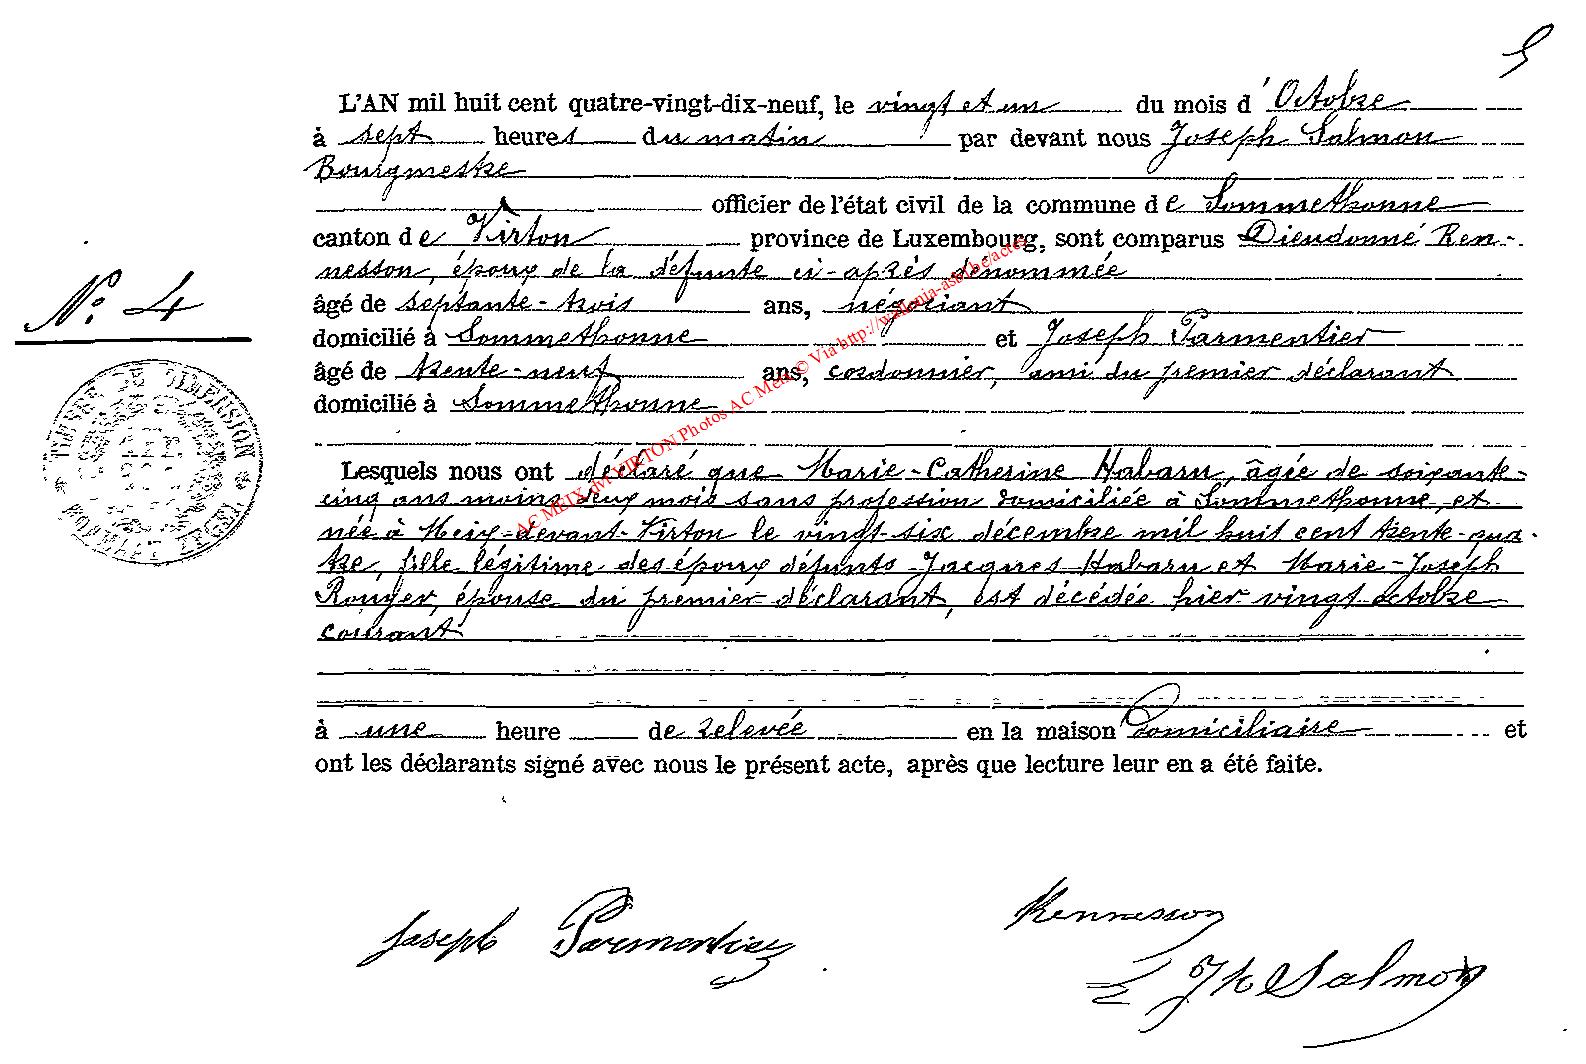 9
L'AN mil huit cent quatre-vingt-dix-neuf, le vingt et un du mois d'Octobre
à sept heures du matin par devant nous Joseph Salmon
Bourgmestre
officier de l'état civil de la commune de Sommethonne
canton de Virton province de Luxembourg, sont comparus Dieudonné Ren-
nesson, époux de la défunte ci-après dénommée
âgé de septante-trois ans, négociant
domicilié à Sommethonne et Joseph Parmentier
âgé de trente-neuf ans, cordonnier, ami du premier déclarant
domicilié à Sommethonne
Lesquels nous ont déclaré que Marie-Catherine Habaru, âgée de soixante-
cinq ans moins deux mois sans profession domiciliée à Sommethonne, et
née à Meix-devant-Virton le vingt-six décembre mil huit cent trente-qua-
tre, fille légitime des époux défunts Jacques Habaru et Marie-Joseph
Rouyer, épouse du premier déclarant, est décédée hier vingt octobre
courant
à une heure de relevée en la maison Domiciliaire et
ont les déclarants signé avec nous le présent acte, après que lecture leur en a été faite.
N° 4
TIMBRE DE DIMENSION
AC MEIX dvt VIRTON Photos AC Meix © Via http://wallonia-asbl.be/actes
Joseph Parmentier
Rennesson
Jh Salmon